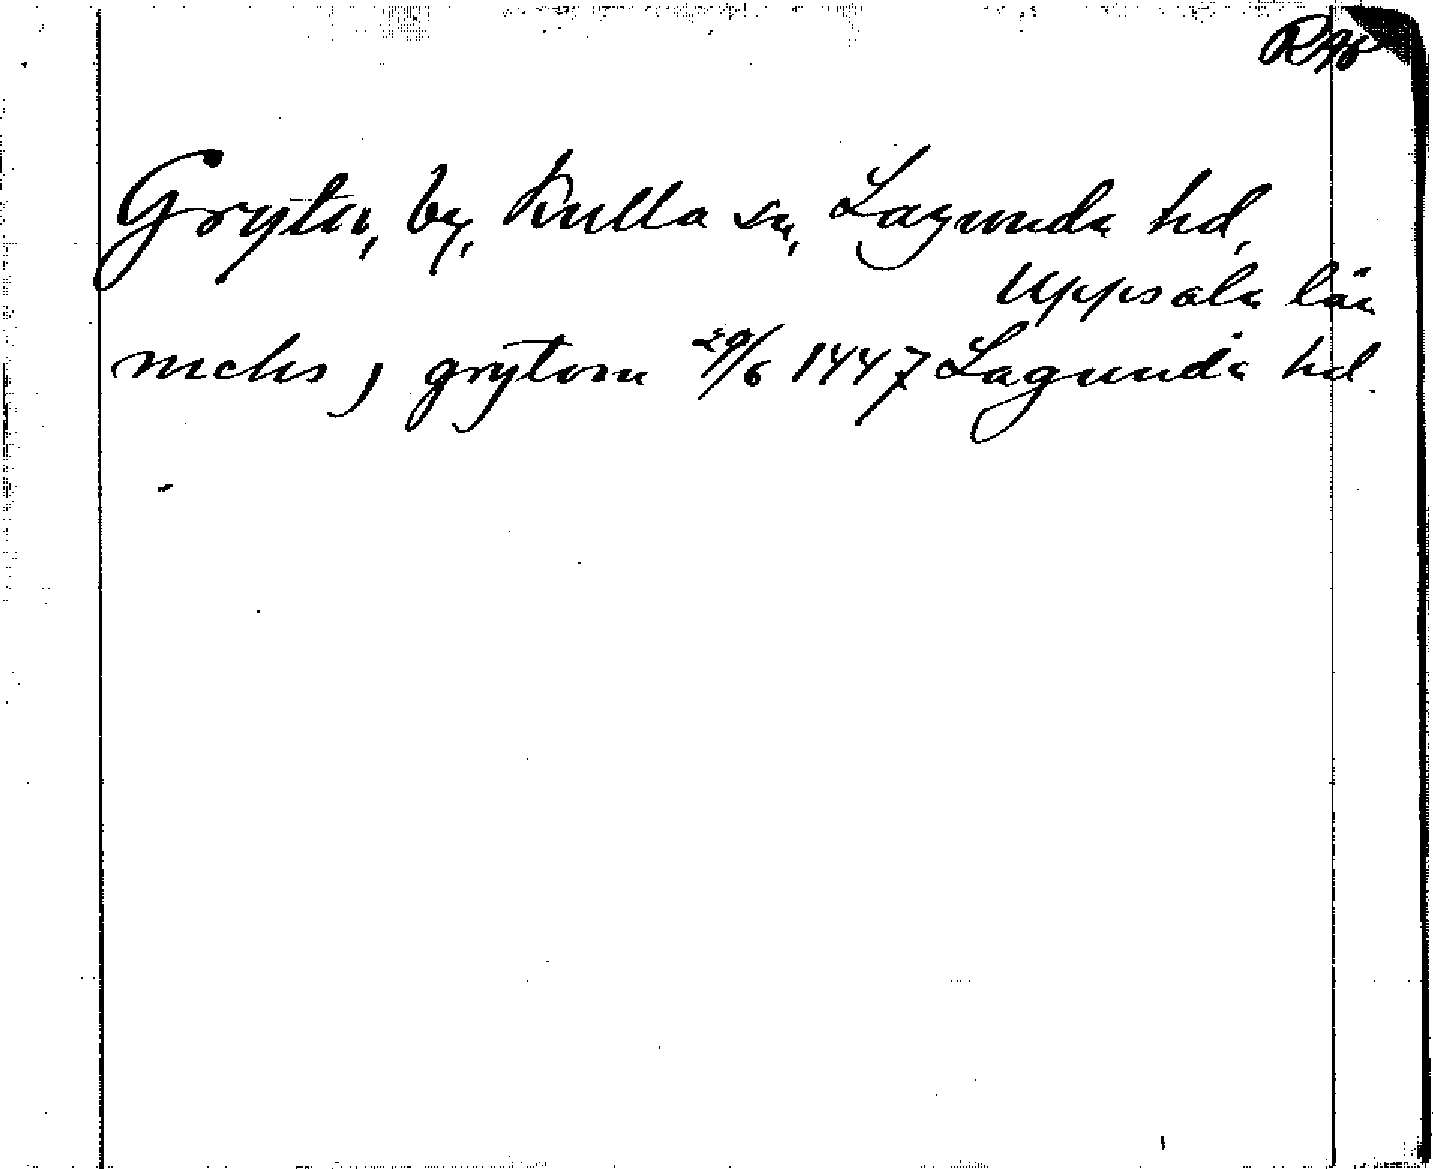 R98
Gryta, by, Kulla sn, Lagunda hd,
Uppsala län
michs j grytom 29/6 1447 Lagunda hd